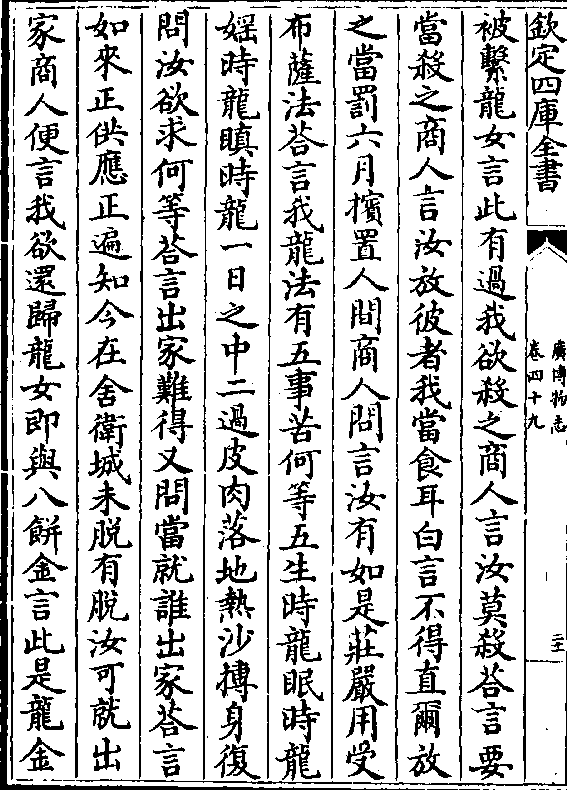 欽定四庫全書
廣博物志
卷四十九
二十
被繫龍女言此有過我欲殺之商人言汝莫殺荅言要
當殺之商人言汝放彼者我當食耳白言不得直爾放
之當罰六月擯置人間商人問言汝有如是莊嚴用受
布薩法荅言我龍法有五事苦何等五生時龍眠時龍
婬時龍瞋時龍一日之中二過皮肉落地熱沙搏身復
問汝欲求何等荅言出家難得又問當就誰出家荅言
如來正供應正遍知今在舍衛城未脫有脫汝可就出
家商人便言我欲還歸龍女即與八餅金言此是龍金